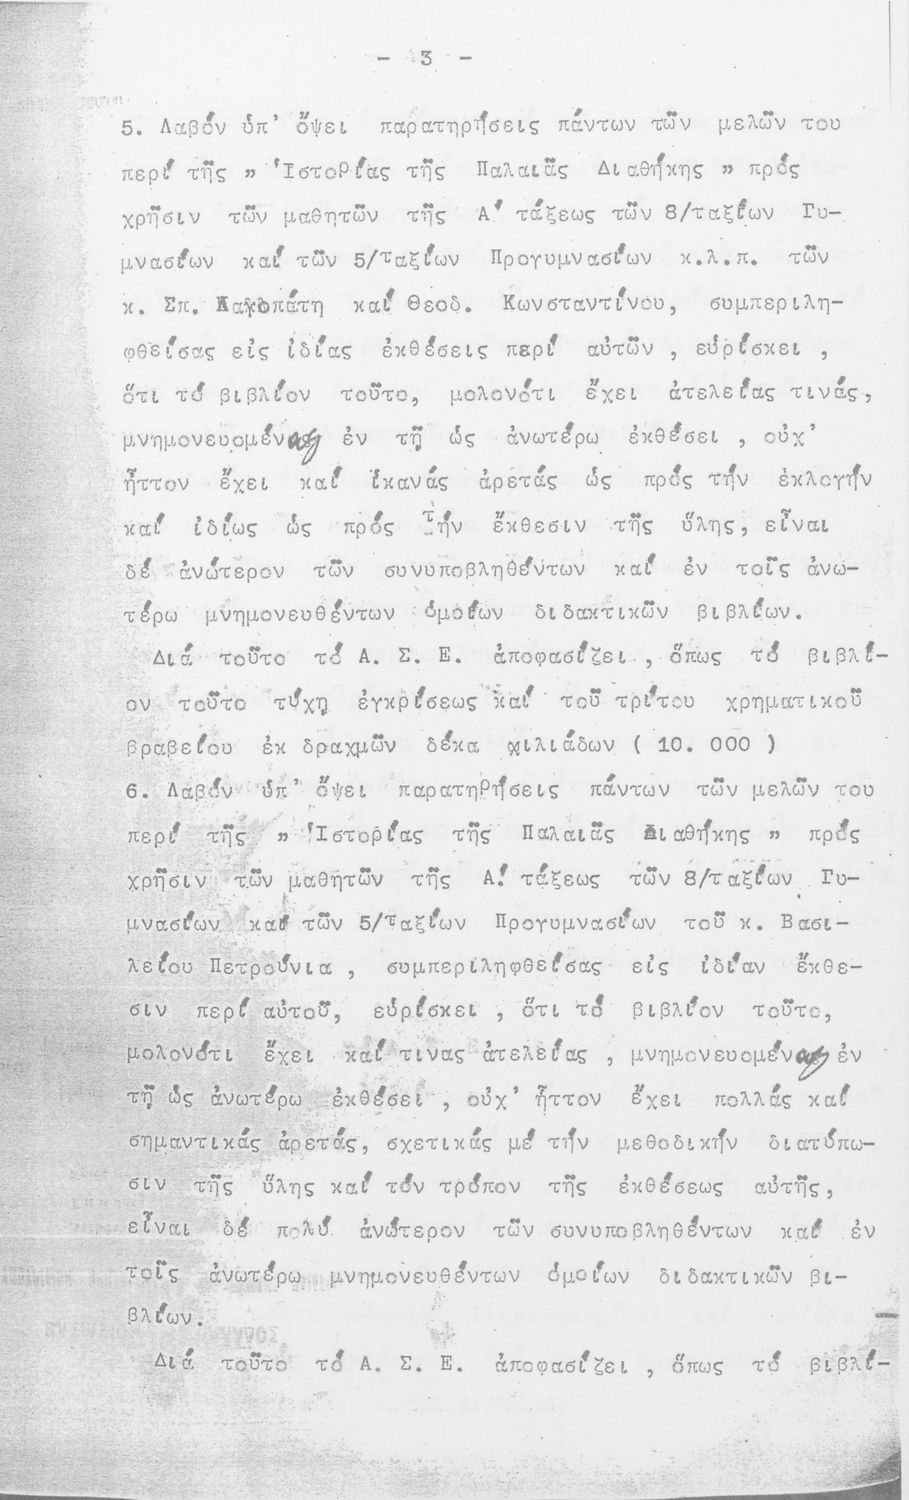 - 3 -
5. Λαβόν ὑπ' ὄψει παρατηρήσεις πάντων τῶν μελῶν του
περί τῆς " Ἱστορίας τῆς Παλαιᾶς Διαθήκης " πρός
χρῆσιν τῶν μαθητῶν τῆς Α' τάξεως τῶν 8/ταξίων Γυ-
μνασίων καί τῶν 5/ταξίων Προγυμνασίων κ.λ.π. τῶν
κ. Σπ. καί Θεοδ. Κωνσταντίνου, συμπεριλη-
φθείσας εἰς ἰδίας ἐκθέσεις περί αὐτῶν , εὑρίσκει ,
ὅτι τό βιβλίον τοῦτο, μολονότι ἔχει ἀτελείας τινάς,
μνημονευομένας ἐν τῇ ὡς ἀνωτέρω ἐκθέσει , οὐχ'
ἧττον ἔχει καί ἱκανάς ἀρετάς ὡς πρός τήν ἐκλογήν
καί ἰδίως ὡς πρός τήν ἔκθεσιν τῆς ὕλης, εἶναι
δέ ἀνώτερον τῶν συνυποβληθέντων καί ἐν τοῖς ἀνω-
τέρω μνημονευθέντων ὁμοίων διδακτικῶν βιβλίων.
Διά τοῦτο τό Α. Σ. Ε. ἀποφασίζει , ὅπως τό βιβλί-
ον τοῦτο τύχῃ ἐγκρίσεως καί τοῦ τρίτου χρηματικοῦ
βραβείου ἐκ δραχμῶν δέκα χιλιάδων ( 10. 000 )
6. Λαβόν ὑπ' ὄψει παρατηρήσεις πάντων τῶν μελῶν του
περί τῆς " Ἱστορίας τῆς Παλαιᾶς Διαθήκης " πρός
χρῆσιν τῶν μαθητῶν τῆς Α' τάξεως τῶν 8/ταξίων Γυ-
μνασίων καί τῶν 5/ταξίων Προγυμνασίων τοῦ κ. Βασι-
λείου Πετρούνια , συμπεριληφθείσας εἰς ἰδίαν ἔκθε-
σιν περί αὐτοῦ, εὑρίσκει , ὅτι τό βιβλίον τοῦτο,
μολονότι ἔχει καί τινας ἀτελείας , μνημονευομένας ἐν
τῇ ὡς ἀνωτέρω ἐκθέσει , οὐχ' ἧττον ἔχει πολλάς καί
σημαντικάς ἀρετάς, σχετικάς μέ τήν μεθοδικήν διατύπω-
σιν τῆς ὕλης καί τόν τρόπον τῆς ἐκθέσεως αὐτῆς,
εἶναι δέ πολύ ἀνώτερον τῶν συνυποβληθέντων καί ἐν
τοῖς ἀνωτέρω μνημονευθέντων ὁμοίων διδακτικῶν βι-
βλίων.
Διά τοῦτο τό Α. Σ. Ε. ἀποφασίζει , ὅπως τό βιβλί-